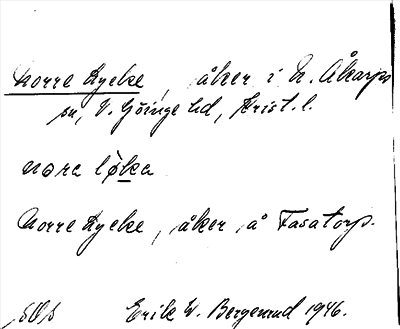 Norre Lycke, åker i N. Åkarps
sn, V. Göinge hd, Krist. l.
nora lø̀ka
Norre Lycke, åker å Fasatorp.
Erik W. Bergerud 1946.